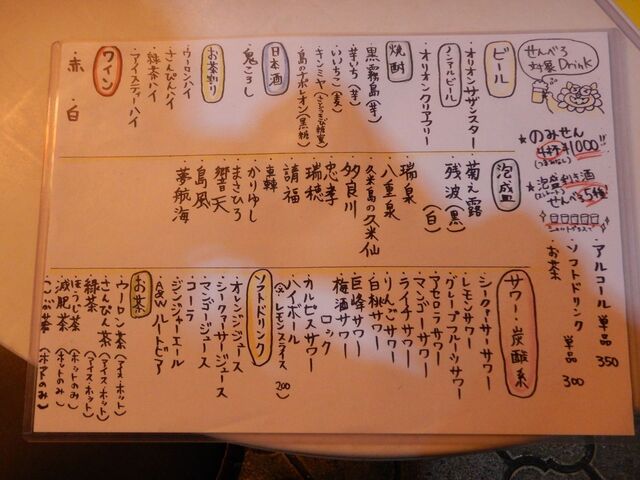 せんべろ
対象Drink
★のみせん
4杯¥1000!!
★泡盛利き酒
せんべろ5種
アルコール 単品 350
ソフトドリンク
お茶
単品 300
ビール
・オリオンサザンスター
ノンアルビール
・オリオンクリアフリー
焼酎
・黒霧島(芋)
・辛いち(芋)
・いいちこ(麦)
・キンミヤ(さとうきび糖蜜)
・島のナポレオン(黒糖)
日本酒
・鬼ころし
お茶割り
・ウーロンハイ
・さんぴんハイ
・緑茶ハイ
・アイスティーハイ
ワイン
・赤・白
泡盛
・菊之露
・残波(黒)
(白)
・瑞泉
・八重泉
・久米島の久米仙
・多良川
・忠孝
・瑞穂
・請福
・直轟
・かりゆし
・まさひろ
・響天
・島風
・夢航海
サワー・炭酸系
・シークヮーサーサワー
・レモンサワー
・グレープフルーツサワー
・アセロラサワー
・マンゴーサワー
・ライチサワー
・りんごサワー
・白桃サワー
・巨峰サワー
・梅酒サワー
ロック
・カルピスサワー
・ハイボール
(※レモンスライス 200)
ソフトドリンク
・オレンジジュース
・シークヮーサージュース
・マンゴージュース
・コーラ
・ジンジャーエール
・A&Wルートビア
お茶
・ウーロン茶(アイス・ホット)
・さんぴん茶(アイス・ホット)
・緑茶(アイス・ホット)
・ほうじ茶(ホットのみ)
・減肥茶(ホットのみ)
・こんぶ茶(ホットのみ)